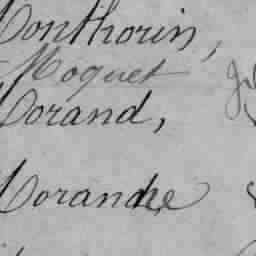 Monthorin,
Moquet
Morand,
Morandre